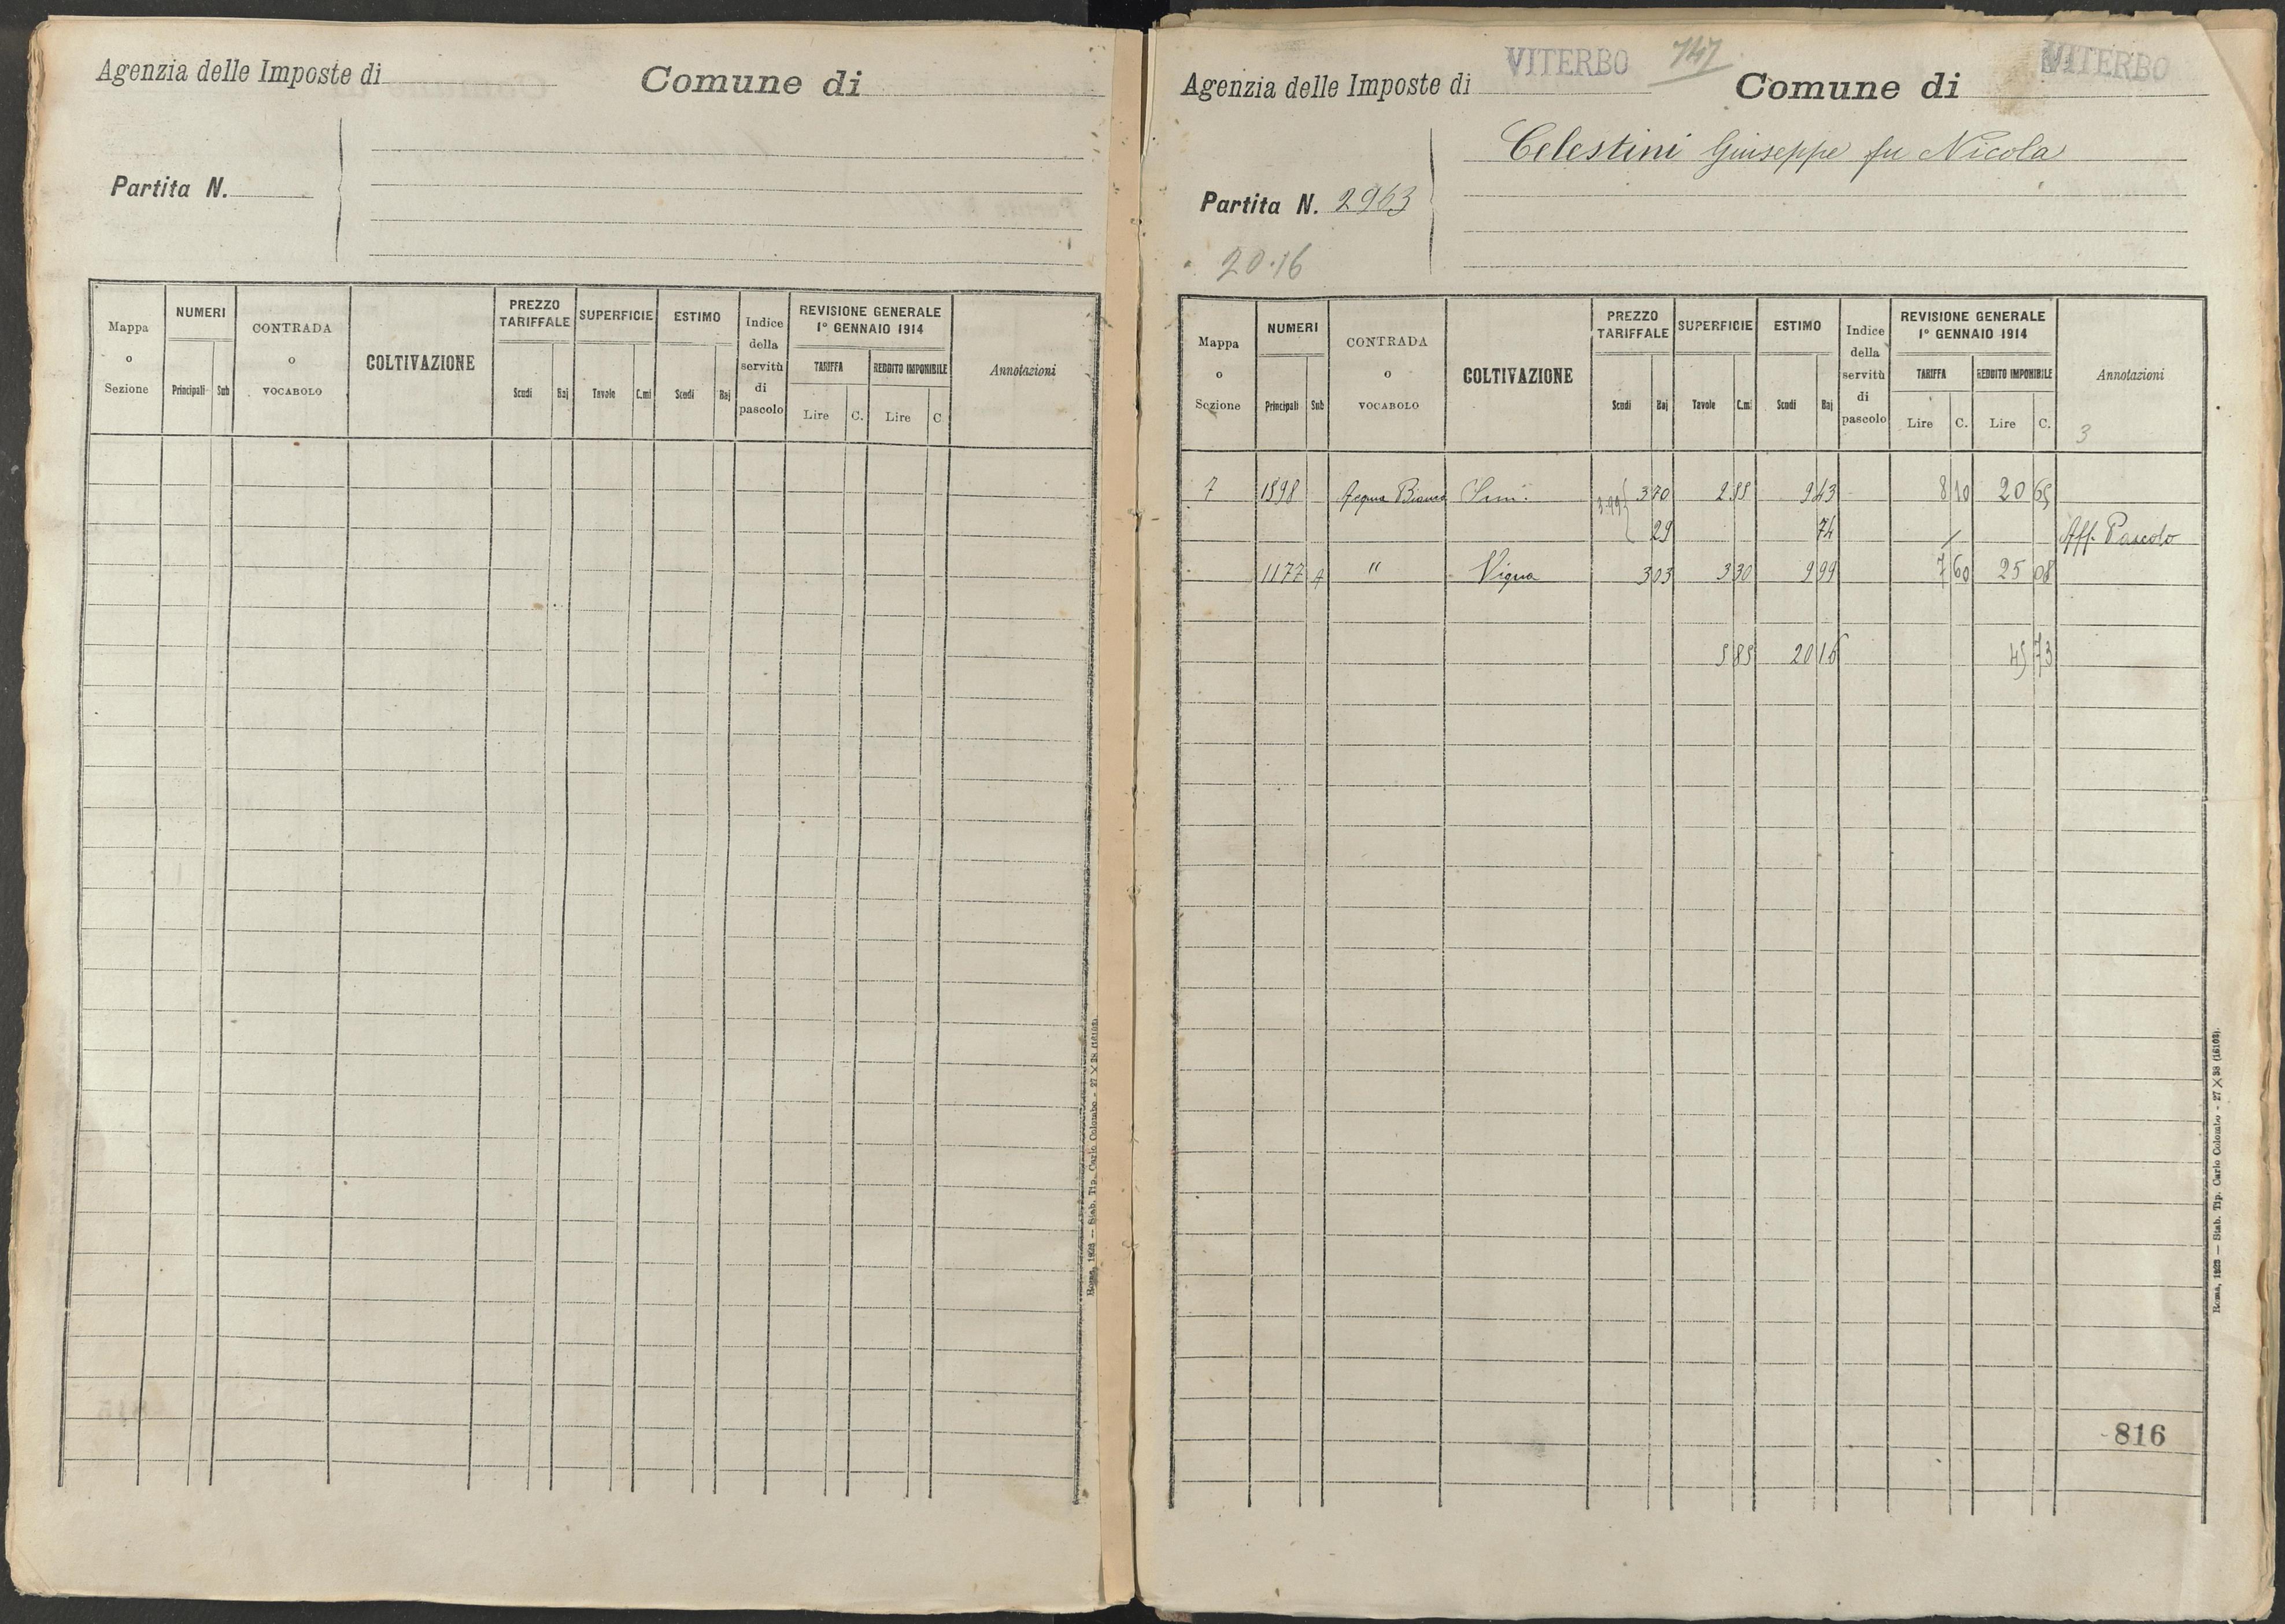 Agenzia delle Imposte di
Comune di
Partita N.
Mappa o Sezione
NUMERI
Principali
Sub
CONTRADA o VOCABOLO
COLTIVAZIONE
PREZZO TARIFFALE
Scudi
Baj
SUPERFICIE
Tavole
C.mi
ESTIMO
Scudi
Baj
Indice della servitù di pascolo
REVISIONE GENERALE
1° GENNAIO 1914
TARIFFA
Lire
C.
REDDITO IMPONIBILE
Lire
C
Annotazioni
Roma, 1923 — Stab. Tip. Carlo Colombo - 27 × 38 (16103).
Agenzia delle Imposte di VITERBO 747
Comune di VITERBO
Celestini Giuseppe fu Nicola
Partita N. 2963
20.16
Mappa o Sezione
NUMERI
Principali
Sub
CONTRADA o VOCABOLO
COLTIVAZIONE
PREZZO TARIFFALE
Scudi
Baj
SUPERFICIE
Tavole
C.mi
ESTIMO
Scudi
Baj
Indice della servitù di pascolo
REVISIONE GENERALE
1° GENNAIO 1914
TARIFFA
Lire
C.
REDDITO IMPONIBILE
Lire
C.
Annotazioni
3
7 1898 Acqua Bianca Sem. 3.99 { 3 70 2 55 9 43 8 10 20 65
29 74 Aff. Pascolo
1177 A " Vigna 3 03 3 30 9 99 7 60 25 08
5 85 20 16 45 73
816
Roma, 1923 — Stab. Tip. Carlo Colombo - 27 × 38 (16103).